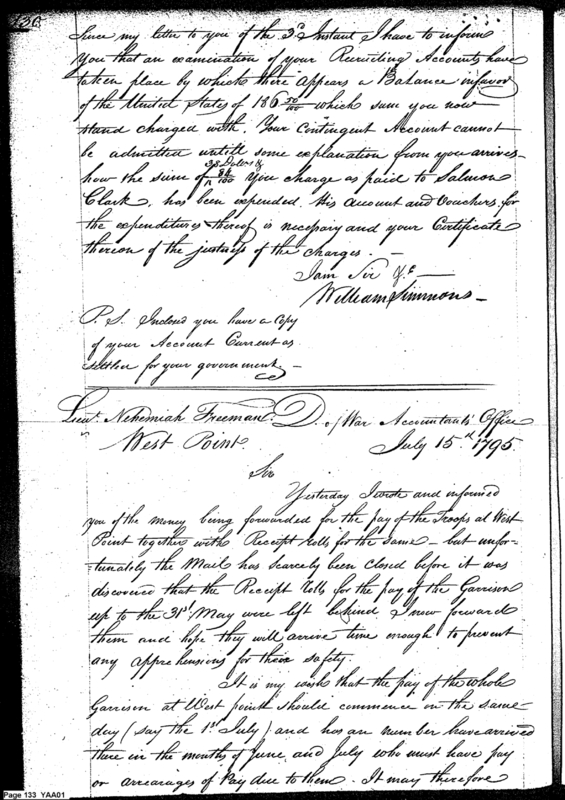 130
Since my letter to you of the 3d Instant I have to inform
you that an examination of your Recruiting Accounts have
taken place by which there appears a Balance in favor
of the United States of 186 50/100 which sum you now
stand charged with. Your Contingent Account cannot
be admitted untill some explanation from you arrives
how the sum of 28 Dollars & 84/100 you charge as paid to Salmon
Clark has been expended. His account and Vouchers for
the expenditures thereof is necessary and your Certificate
thereon of the justness of the charges. —
I am Sir &c —
William Simmons —
P. S. Inclosed you have a Copy
of your Account Current as
settled for your government —
Lieut. Nehemiah Freeman. D. of War Accountants Office
West Point. July 15th 1795.
Sir
Yesterday I wrote and informed
you of the money being forwarded for the pay of the Troops at West
Point together with Receipt rolls for the same — but unfor-
tunately the Mail has scarcely been closed before it was
discovered that the Receipt Rolls for the pay of the Garrison
up to the 31st May were left behind I now forward
them and hope they will arrive time enough to prevent
any apprehensions for their safety.
It is my wish that the pay of the whole
Garrison at West point should commence on the same
day (say the 1st July) and has an number have arrived
there in the months of June and July who must have pay
or arrearages of Pay due to them. It may therefore
Page 133 YAA01